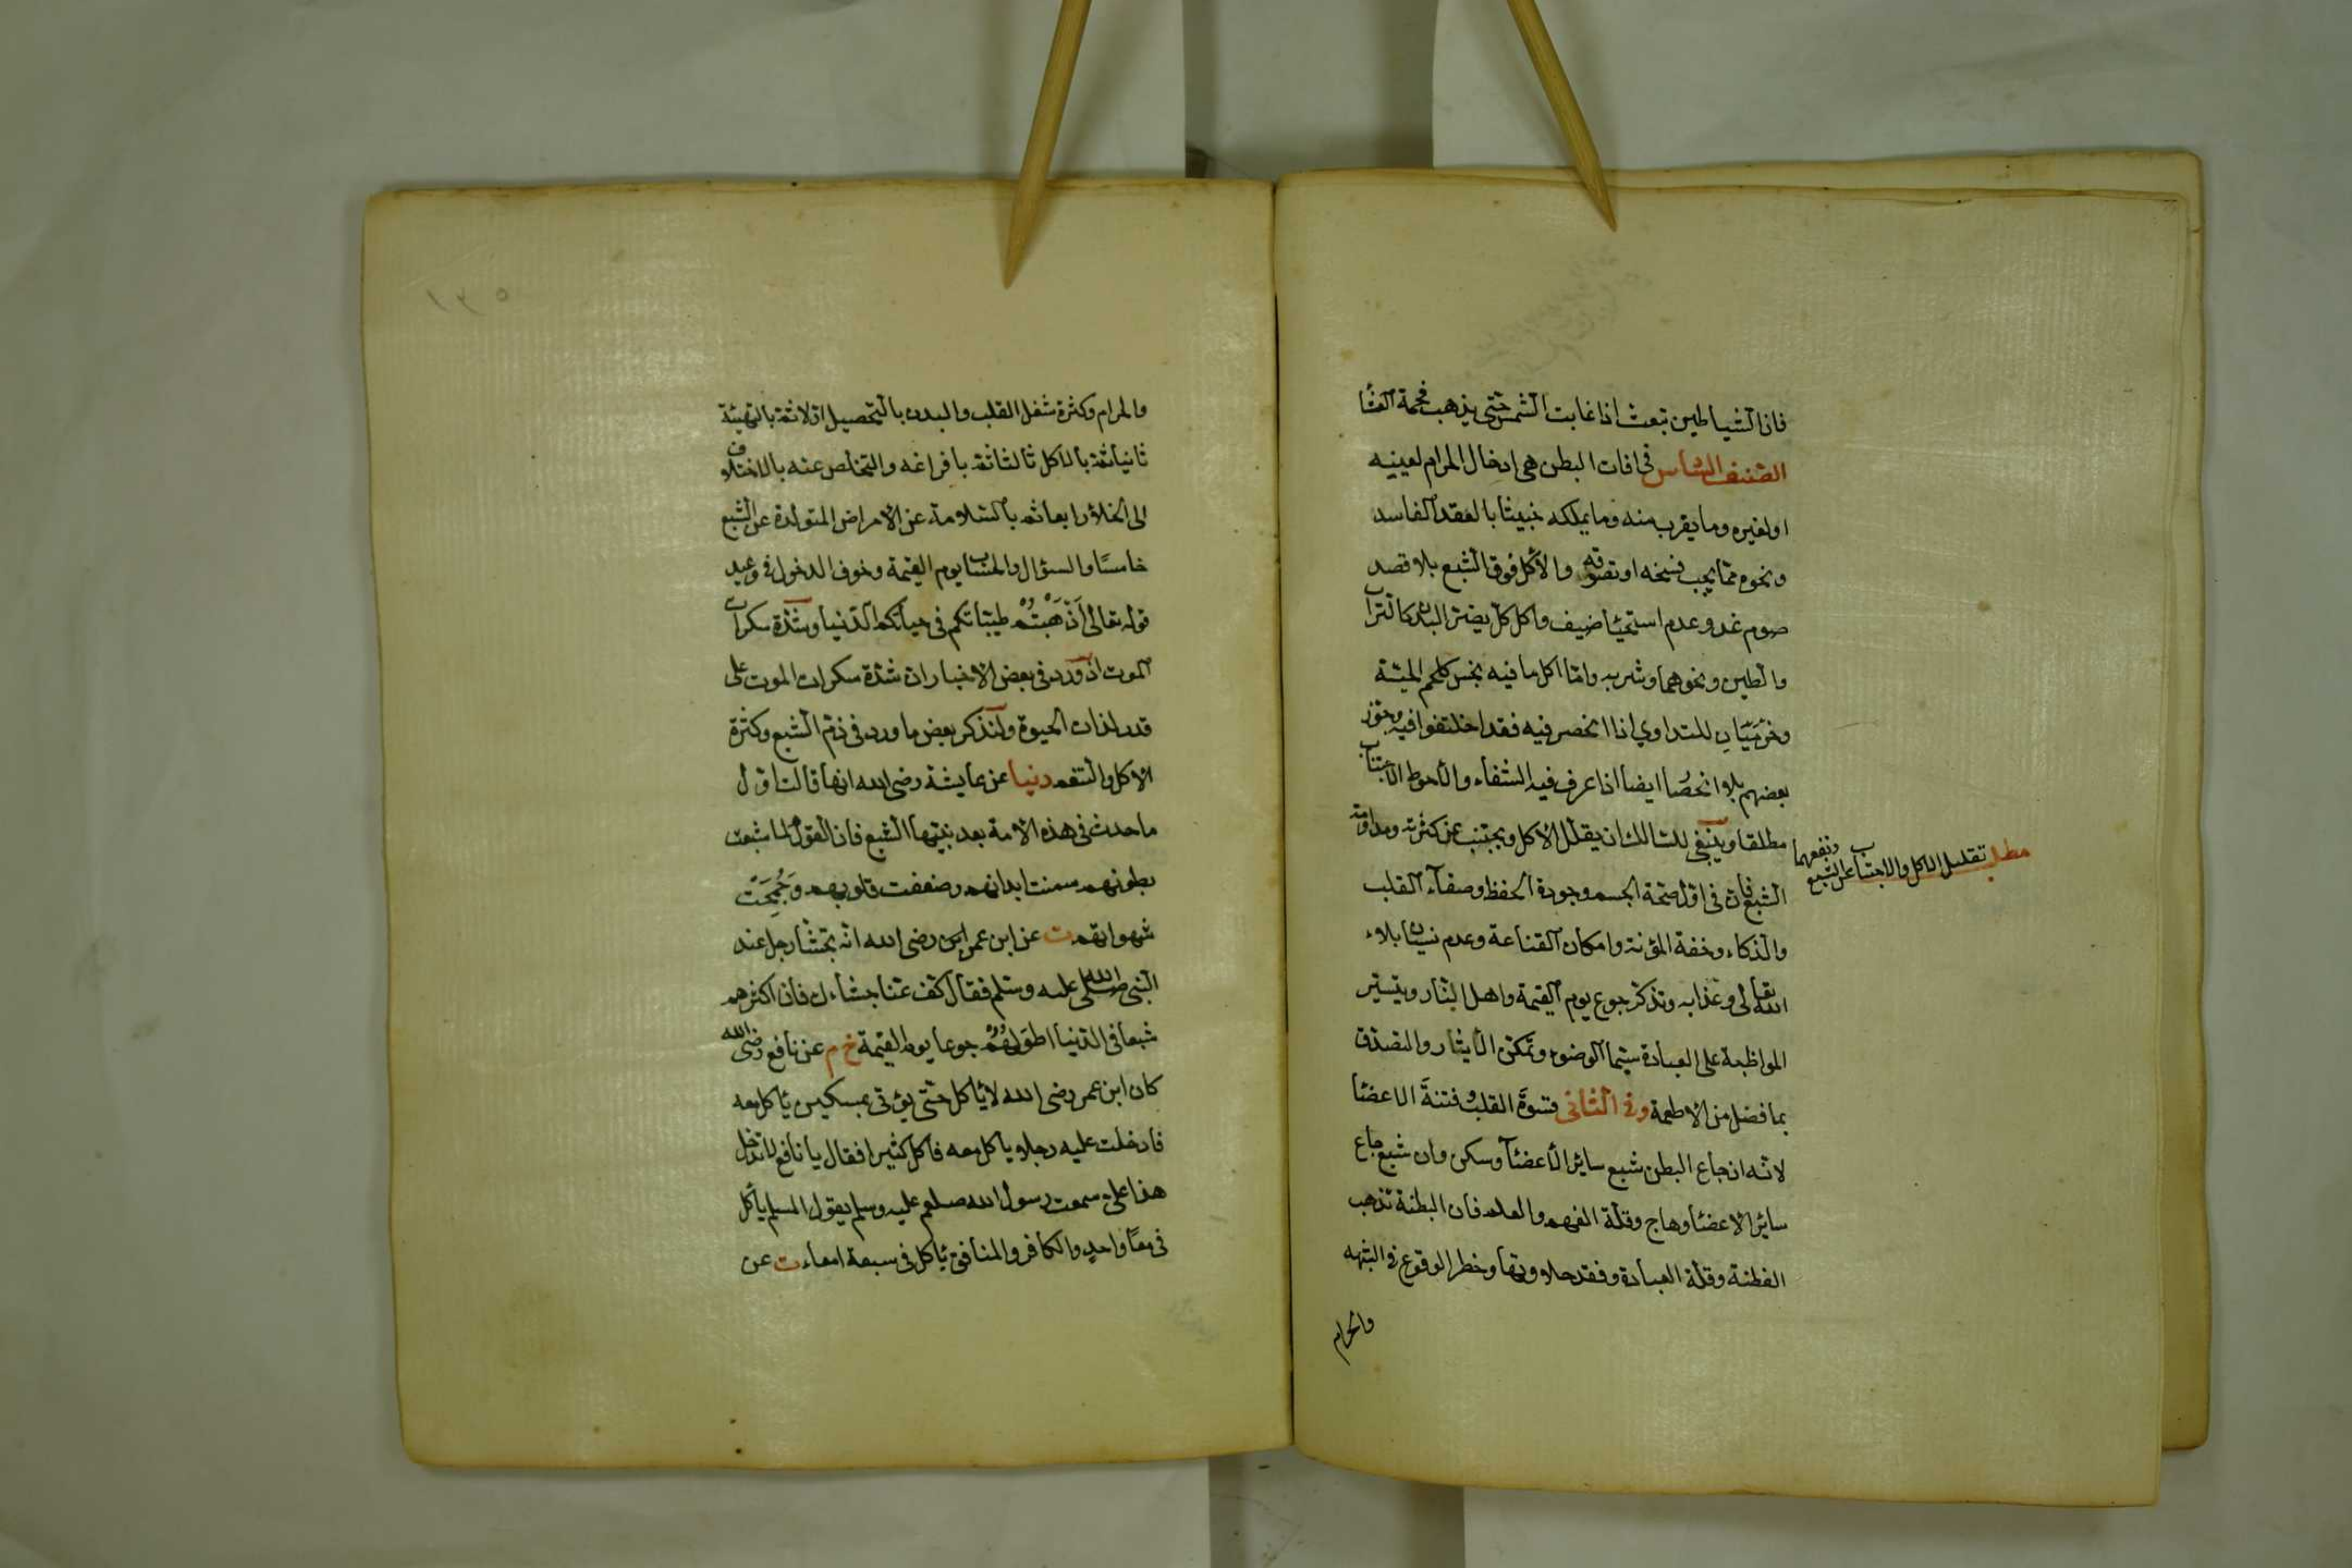 فان الشياطين تبعث اذا غابت الشمس حتى يذهب فحمة العشا
الصنف السادس فى افات البطن هى ادخال الحرام لعينيه
او لغيره وما يقرب منه وما يملكه خبيثا بالعقد الفاسد
ونحوه مما يجب فسخه او تصدقه والاكل فوق الشبع بلا قصد
صوم غد وعدم استحيا ضيف واكل كل يضر البدن كالتراب
والطين ونحوهما وشربه واما اكل ما فيه نجس كلحم الميتة
وخرؤ للتداوي اذا انحصر فيه فقد اختلفوا فيه وجوز
بعضهم بلا انحصا ايضا اذا عرف فيه الشفاء والاحوط الاجتناب
مطلقا وينبغى للسالك ان يقلل الاكل ويجتنب عن كثرته ومداومة
مطلب تقليل الاكل والاجتناب عن الشبع ونفعهما
الشبع فان فى اوله صحة الجسم وجودة الحفظ وصفاء القلب
والذكاء وخفة المؤنة وامكان القناعة وعدم نسيان بلاء
الله تعالى وعذابه وتذكر جوع يوم القيمة واهل النار وتيسير
المواظبة على العبادة سيما الوضوء وتمكن الايثار والتصدق
بما فضل من الاطعمة وفى الثانى قسوة القلب وفتنة الاعضا
لانه ان جاع البطن شبع سائر الاعضا وسكن وان شبع جاع
سائر الاعضا وهاج وقلة الفهم والعلم فان البطنة تذهب
الفطنة وقلة العبادة وفقد حلاوتها وخطر الوقوع فى الشبهه
والحرام
١٢٥
والحرام وكثرة شغل القلب والبدن بالتحصيل اولا ثم بالتهيئة
ثانيا ثم بالاكل ثالثا ثم بافراغه والتخلص عنه بالاختلاف
الى الخلاء رابعا ثم بالسلامة عن الامراض المتولدة عن الشبع
خامسا والسؤال والحساب يوم القيمة وخوف الدخول فى وعيد
قوله تعالى اذهبتم طيباتكم فى حياتكم الدنيا وشدة سكرات
الموت اذ ورد فى بعض الاخبار ان شدة سكرات الموت على
قدر لذات الحيوة ولنذكر بعض ما ورد فى ذم الشبع وكثرة
الاكل والتنعم دنيا عن عايشة رضى الله انها قالت اول
ما حدث فى هذه الامة بعد نبيها الشبع فان القوم لما شبعت
بطونهم سمنت ابدانهم وضعفت قلوبهم وجمحت
شهواتهم ت عن ابن عمر رضى الله انه تجشأ رجل عند
النبى صلى الله عليه وسلم فقال كف عنا جشاءك فان اكثرهم
شبعا فى الدنيا اطولهم جوعا يوم القيمة خ م عن نافع رضى الله
كان ابن عمر رضى الله لا ياكل حتى يؤتى بمسكين ياكل معه
فادخلت عليه رجلا ياكل معه فاكل كثيرا فقال يا نافع لا تدخل
هذا على سمعت رسول الله صلعم عليه وسلم يقول المسلم ياكل
فى معا واحد والكافر والمنافق ياكل فى سبعة امعاء ت عن